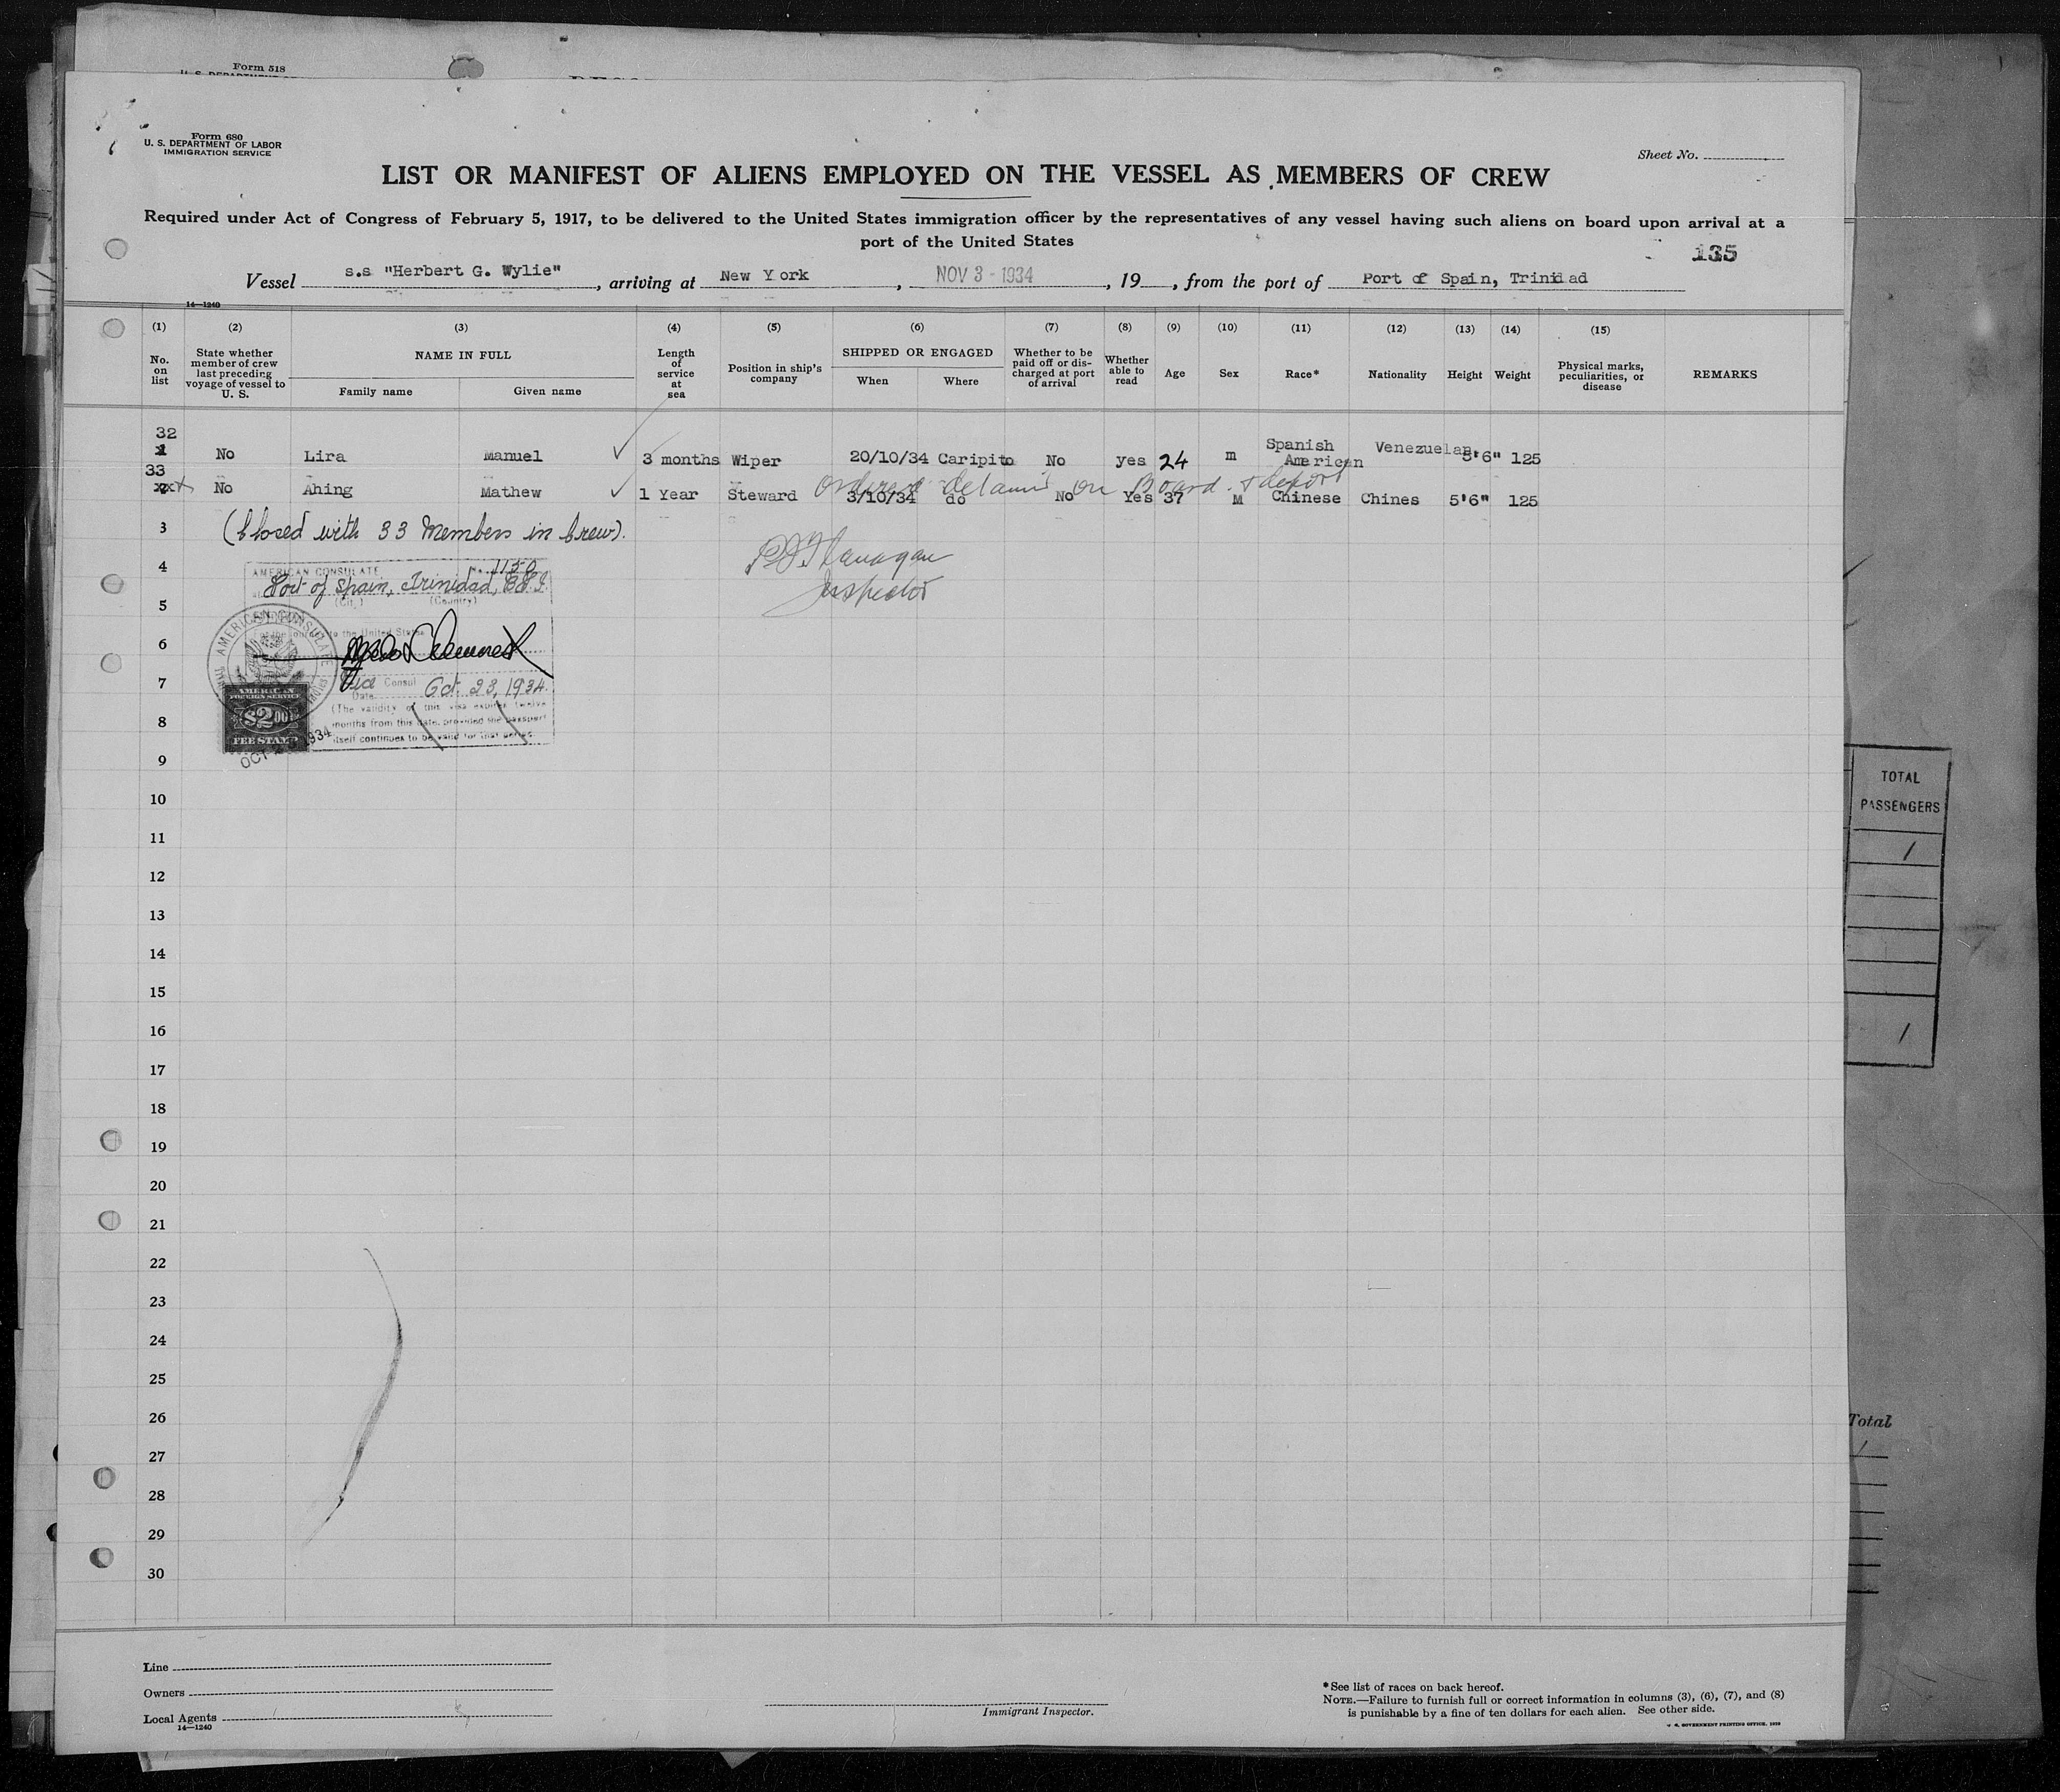 Form 518
Form 680
U. S. DEPARTMENT OF LABOR
IMMIGRATION SERVICE
Sheet No.
LIST OR MANIFEST OF ALIENS EMPLOYED ON THE VESSEL AS MEMBERS OF CREW
Required under Act of Congress of February 5, 1917, to be delivered to the United States immigration officer by the representatives of any vessel having such aliens on board upon arrival at a
port of the United States
135
Vessel s.s "Herbert G. Wylie", arriving at New York, NOV 3 - 1934, 19, from the port of Port of Spain, Trinidad
14—1240
(1) (2) (3) (4) (5) (6) (7) (8) (9) (10) (11) (12) (13) (14) (15)
No. on list
State whether member of crew last preceding voyage of vessel to U. S.
NAME IN FULL
Family name Given name
Length of service at sea
Position in ship's company
SHIPPED OR ENGAGED
When Where
Whether to be paid off or discharged at port of arrival
Whether able to read
Age Sex Race* Nationality Height Weight
Physical marks, peculiarities, or disease
REMARKS
32
1 No Lira Manuel 3 months Wiper 20/10/34 Caripito No yes 24 m Spanish American Venezuelan 5'6" 125
33
Ordered detained on Board & deport
No Ahing Mathew 1 Year Steward 3/10/34 do No Yes 37 M Chinese Chines 5'6" 125
3 (Closed with 33 Members in Crew).
4
AMERICAN CONSULATE No. 1150
Port of Spain, Trinidad, B.W.I.
(City) (Country)
Flanagan
Inspector
5
6
AMERICAN CONSULATE
to the United States
7
Vice Consul
Date Oct. 23, 1934.
AMERICAN
FOREIGN SERVICE
$2.00
FEE STAMP
(The validity of this visa expires twelve
months from this date, provided the passport
itself continues to be valid for that period.
8
9
10
11
12
13
14
15
16
17
18
19
20
21
22
23
24
25
26
27
28
29
30
TOTAL
PASSENGERS
1
1
Total
1
Line
Owners
Local Agents
14—1240
Immigrant Inspector.
*See list of races on back hereof.
NOTE.—Failure to furnish full or correct information in columns (3), (6), (7), and (8)
is punishable by a fine of ten dollars for each alien. See other side.